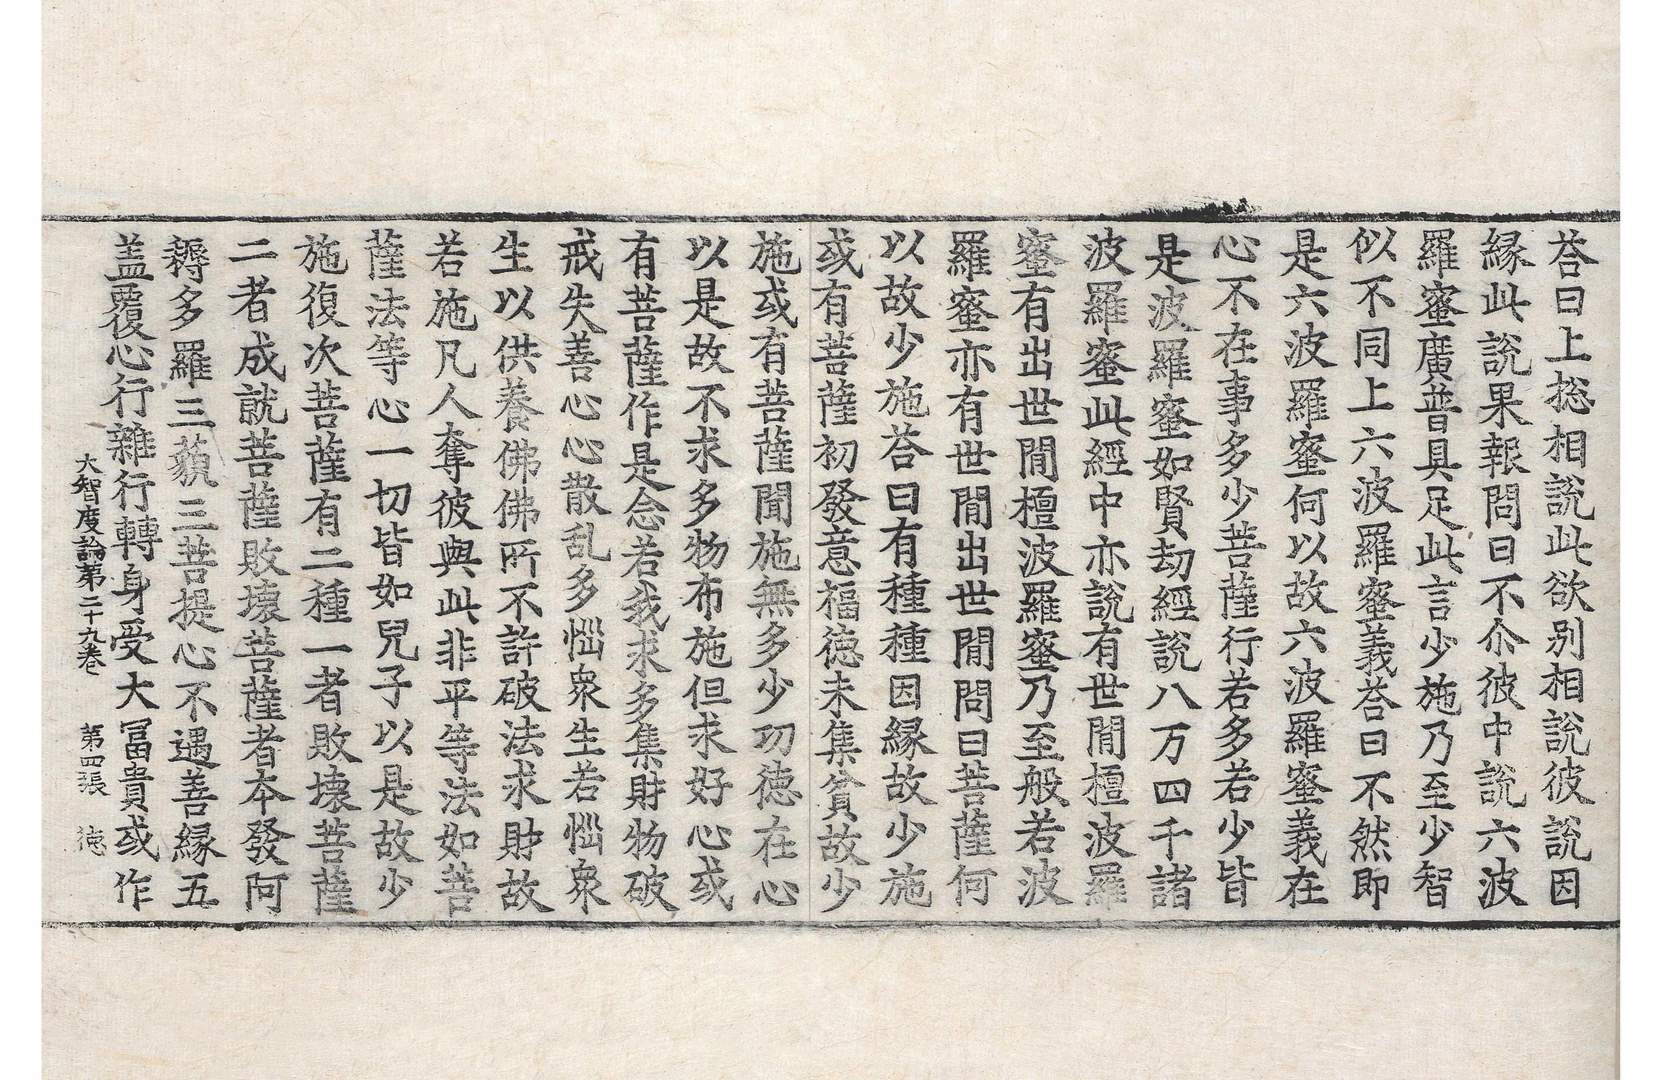 荅曰上揔相說此欲別相說彼說因
縁此說果報問曰不尒彼中說六波
羅蜜廣普具足此言少施乃至少智
似不同上六波羅蜜義荅曰不然即
是六波羅蜜何以故六波羅蜜義在
心不在事多少菩薩行若多若少皆
是波羅蜜如賢劫經說八万四千諸
波羅蜜此經中亦說有世閒檀波羅
蜜有出世閒檀波羅蜜乃至般若波
羅蜜亦有世閒出世閒問曰菩薩何
以故少施荅曰有種種因縁故少施
或有菩薩初發意福德未集貧故少
施或有菩薩聞施無多少功德在心
以是故不求多物布施但求好心或
有菩薩作是念若我求多集財物破
戒失善心心散乱多惱衆生若惱衆
生以供養佛佛所不許破法求財故
若施凡人奪彼與此非平等法如菩
薩法等心一切皆如兒子以是故少
施復次菩薩有二種一者敗壞菩薩
二者成就菩薩敗壞菩薩者本發阿
耨多羅三藐三菩提心不遇善縁五
盖覆心行雜行轉身受大冨貴或作
大智度論第二十九卷　第四張　德